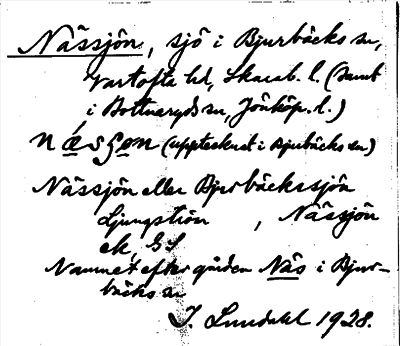 Nässjön, sjö i Bjurbäcks sn,
Vartofta hd, Skarab. l. (samt
i Bottnaryds sn, Jönköp. l.)
(upptecknat i Bjurbäcks sn)
Nässjön eller Bjurbäckssjön
Ljungstion, Nässjön
ek, GS
Namnet efter gården Näs i Bjur-
bäcks sn
J. Lundahl 1928.